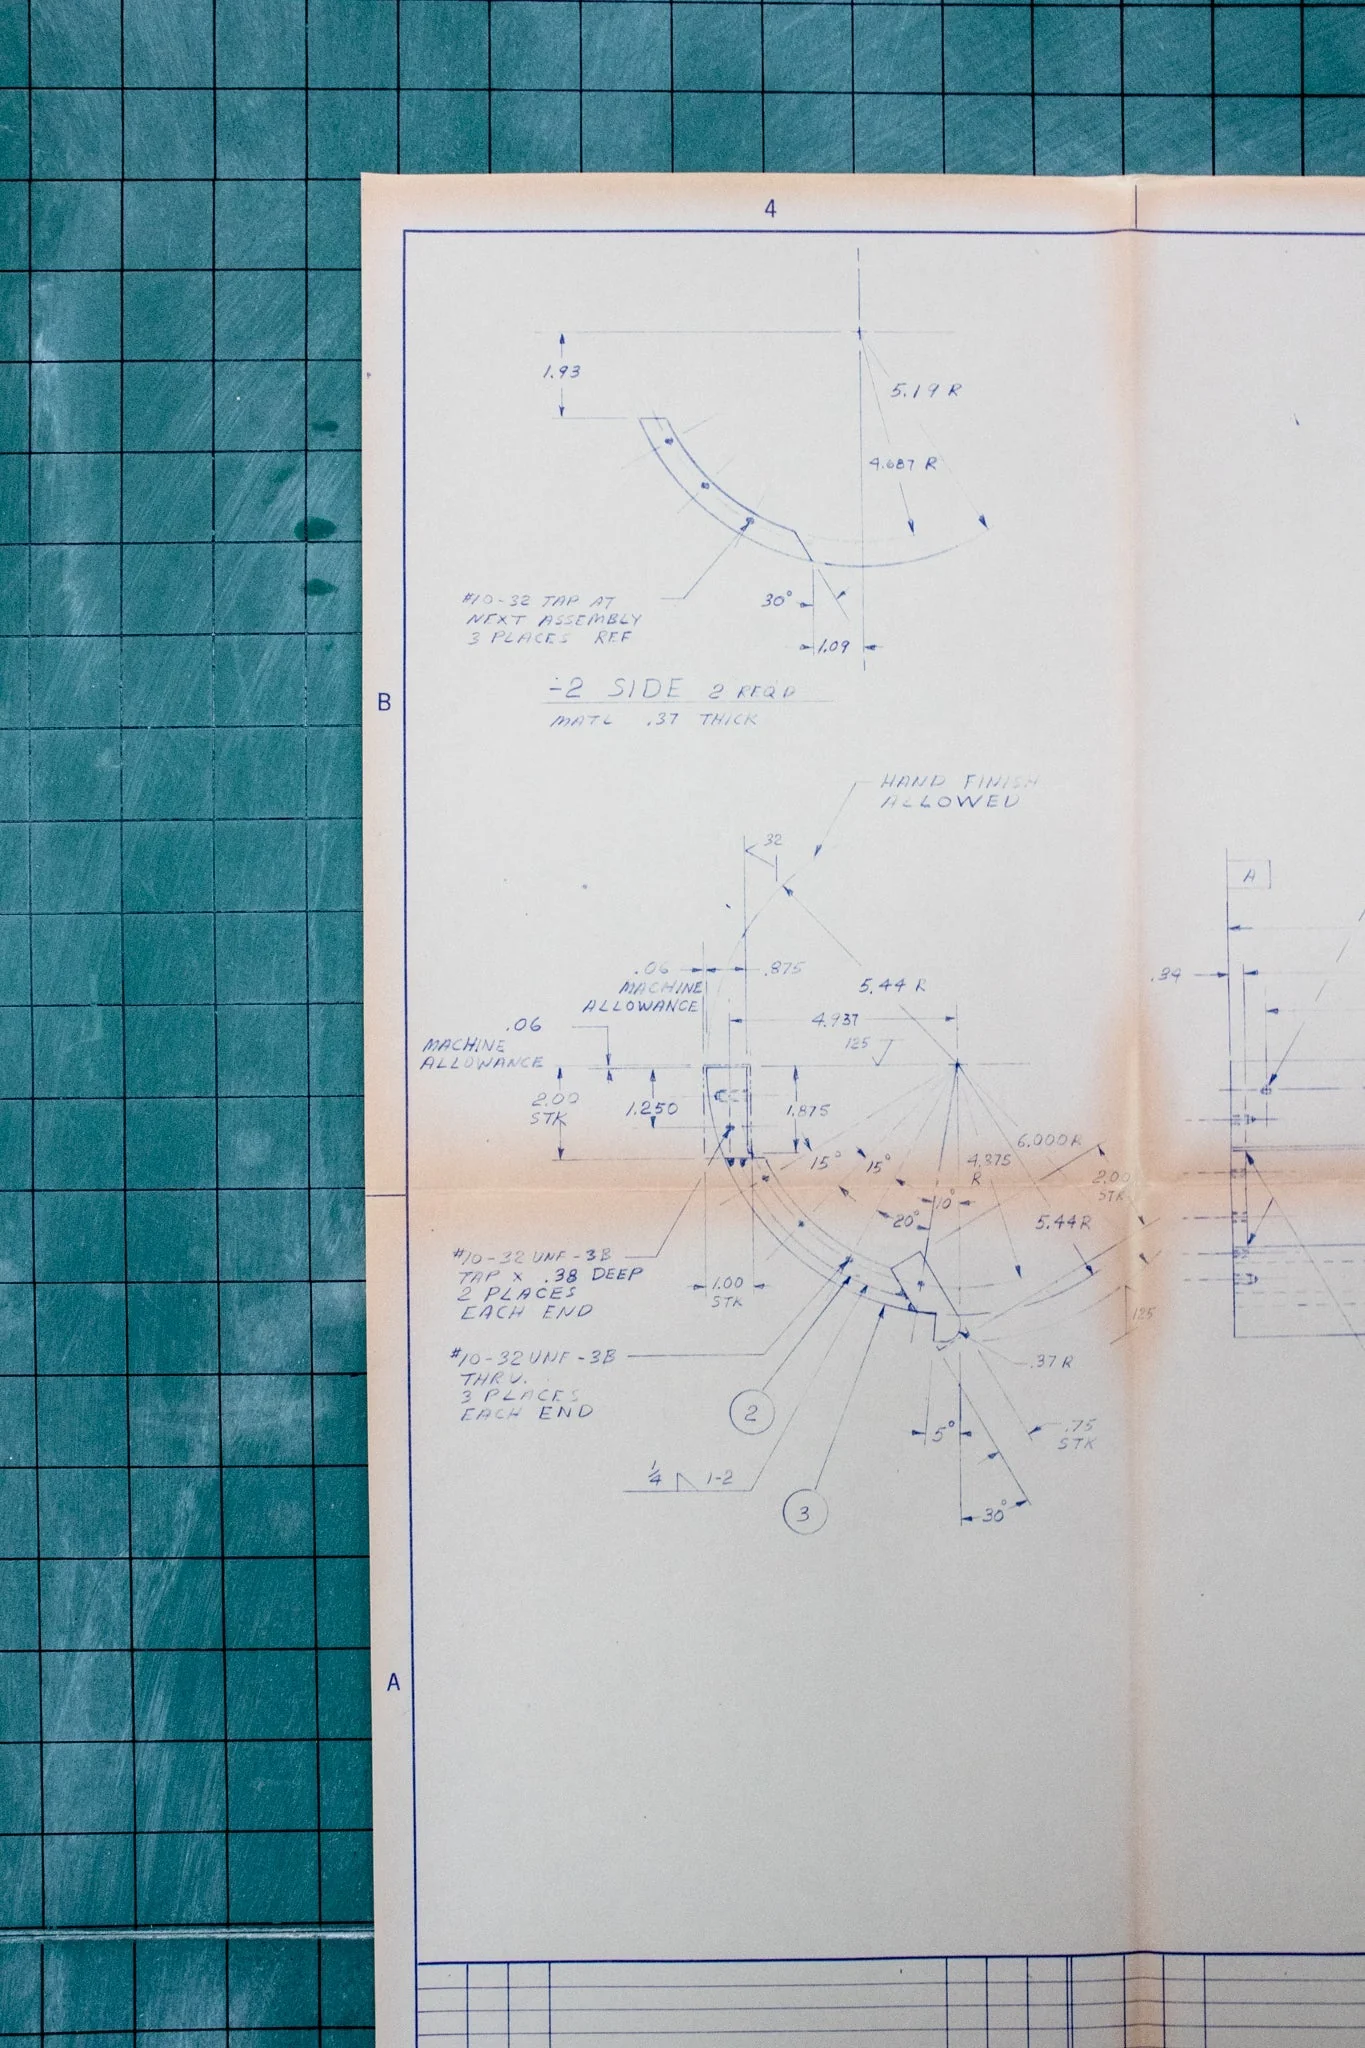 4
1.93
5.19 R
4.687 R
#10-32 TAP AT
NEXT ASSEMBLY
3 PLACES REF
30°
1.09
-2 SIDE 2 REQD
MATL .37 THICK
B
HAND FINISH
ALLOWED
32
A
.06
MACHINE
ALLOWANCE
.875
5.44 R
4.937
125
.06
MACHINE
ALLOWANCE
2.00
STK
1.250
1.875
15°
15°
20°
10°
4.375
R
6.000 R
2.00
STK
5.44 R
#10-32 UNF-3B
TAP X .38 DEEP
2 PLACES
EACH END
1.00
STK
125
#10-32 UNF-3B
THRU.
3 PLACES
EACH END
.37 R
2
5°
.75
STK
1/4 1-2
3
30°
A